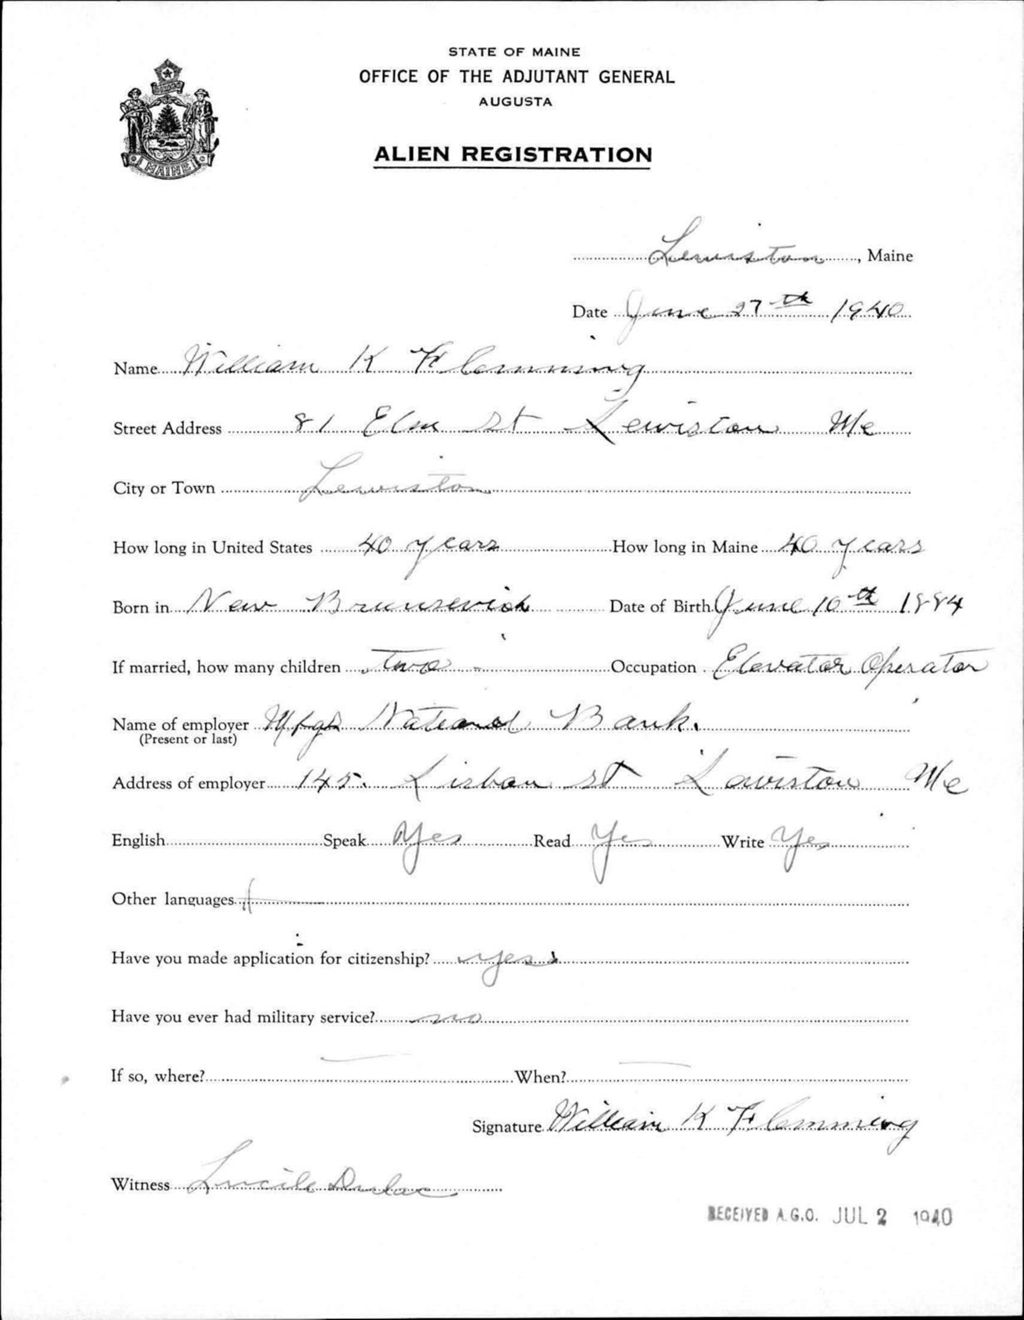 STATE OF MAINE
OFFICE OF THE ADJUTANT GENERAL
AUGUSTA
ALIEN REGISTRATION
MAINE
Lewiston, Maine
Date June 27th 1940
Name William K Flemming
Street Address 81 Elm St Lewiston Me
City or Town Lewiston
How long in United States 40 years How long in Maine 40 years
Born in New Brunswick Date of Birth June 10th 1884
If married, how many children two Occupation Elevator Operator
Name of employer Mfgs National Bank.
(Present or last)
Address of employer 145. Lisbon St Lewiston Me
English Speak Yes Read Yes Write Yes
Other languages
Have you made application for citizenship? yes
Have you ever had military service? no
If so, where? When?
Signature William K Flemming
Witness Lucile Dulac
RECEIVED A.G.O. JUL 2 1940